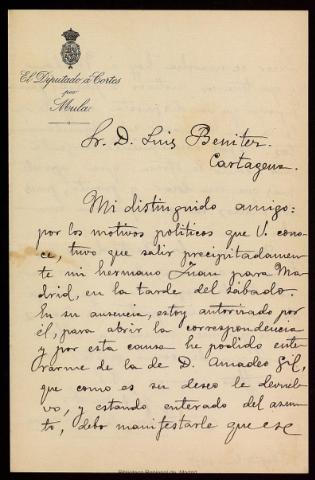 El Diputado á Cortes
por
Mula
Sr. D. Luis Benitez.
Cartagena.
Mi distinguido amigo:
por los motivos políticos que V. cono-
ce, tuvo que salir precipitadamen-
te mi hermano Juan para Ma-
drid, en la tarde del sábado.
En su ausencia, estoy autorizado por
él, para abrir la correspondencia
y por esta causa he podido ente-
rarme de la de D. Amadeo Gil,
que como es su deseo le devuel-
vo, y estando enterado del asun-
to, debo manifestarle que ese
Biblioteca Regional de Murcia